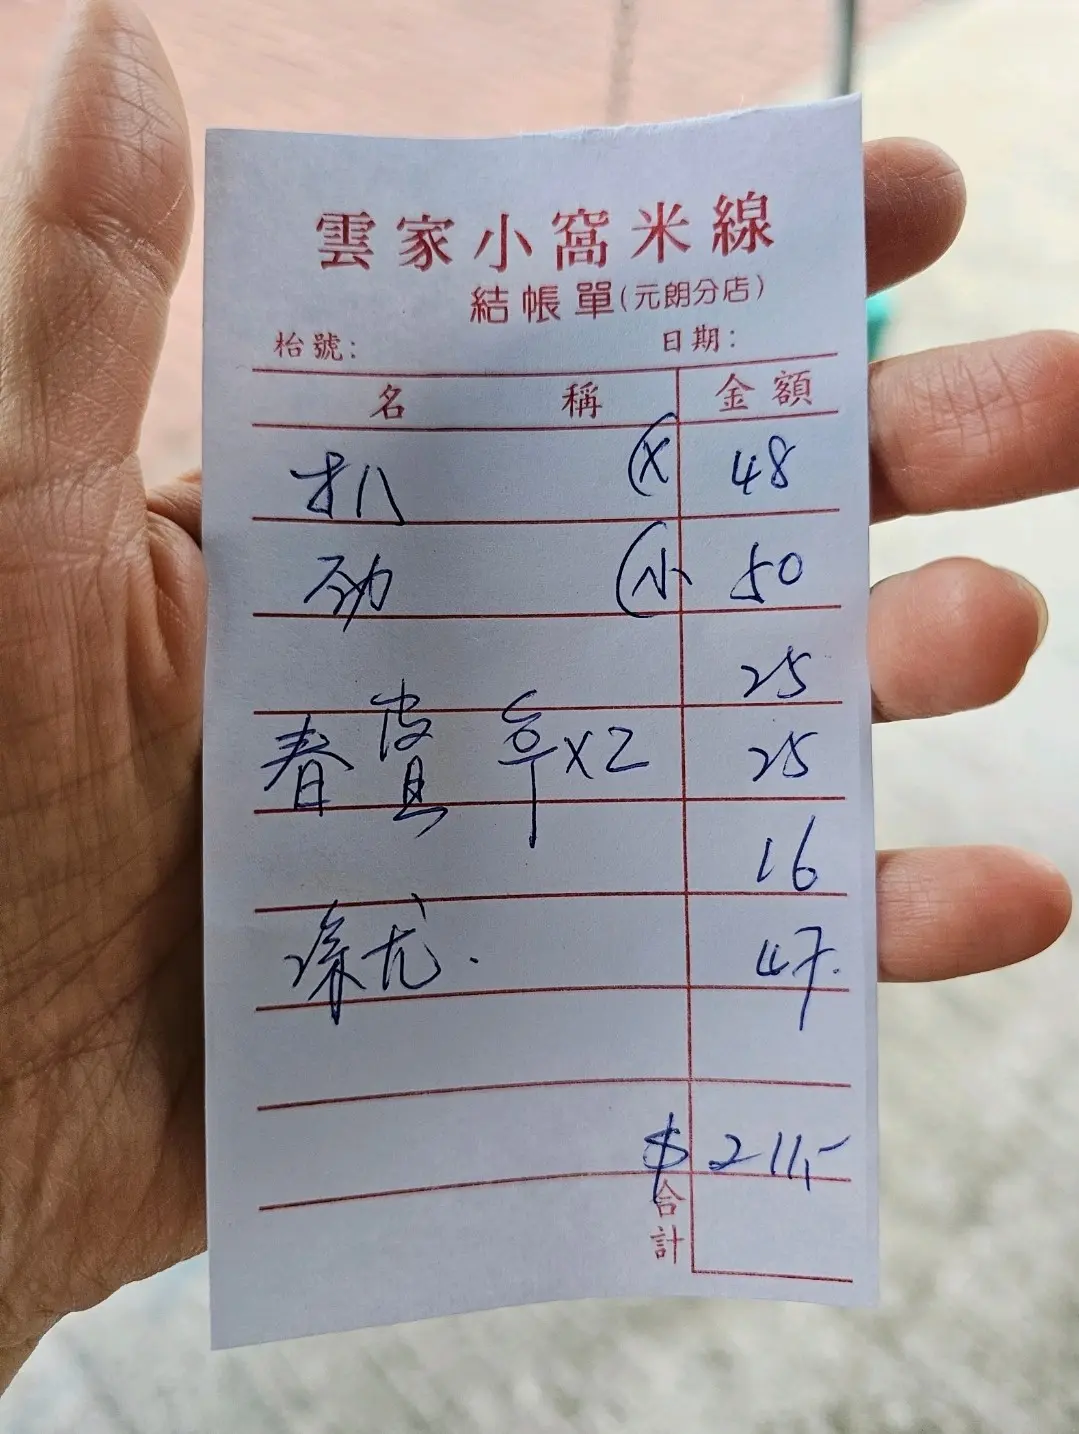 雲家小窩米線
結帳單(元朗分店)
枱號: 日期:
名 稱 金額
扒 (X 48
劲 (小 50
25
春 X2 25
16
47.
$ 211,-
合計